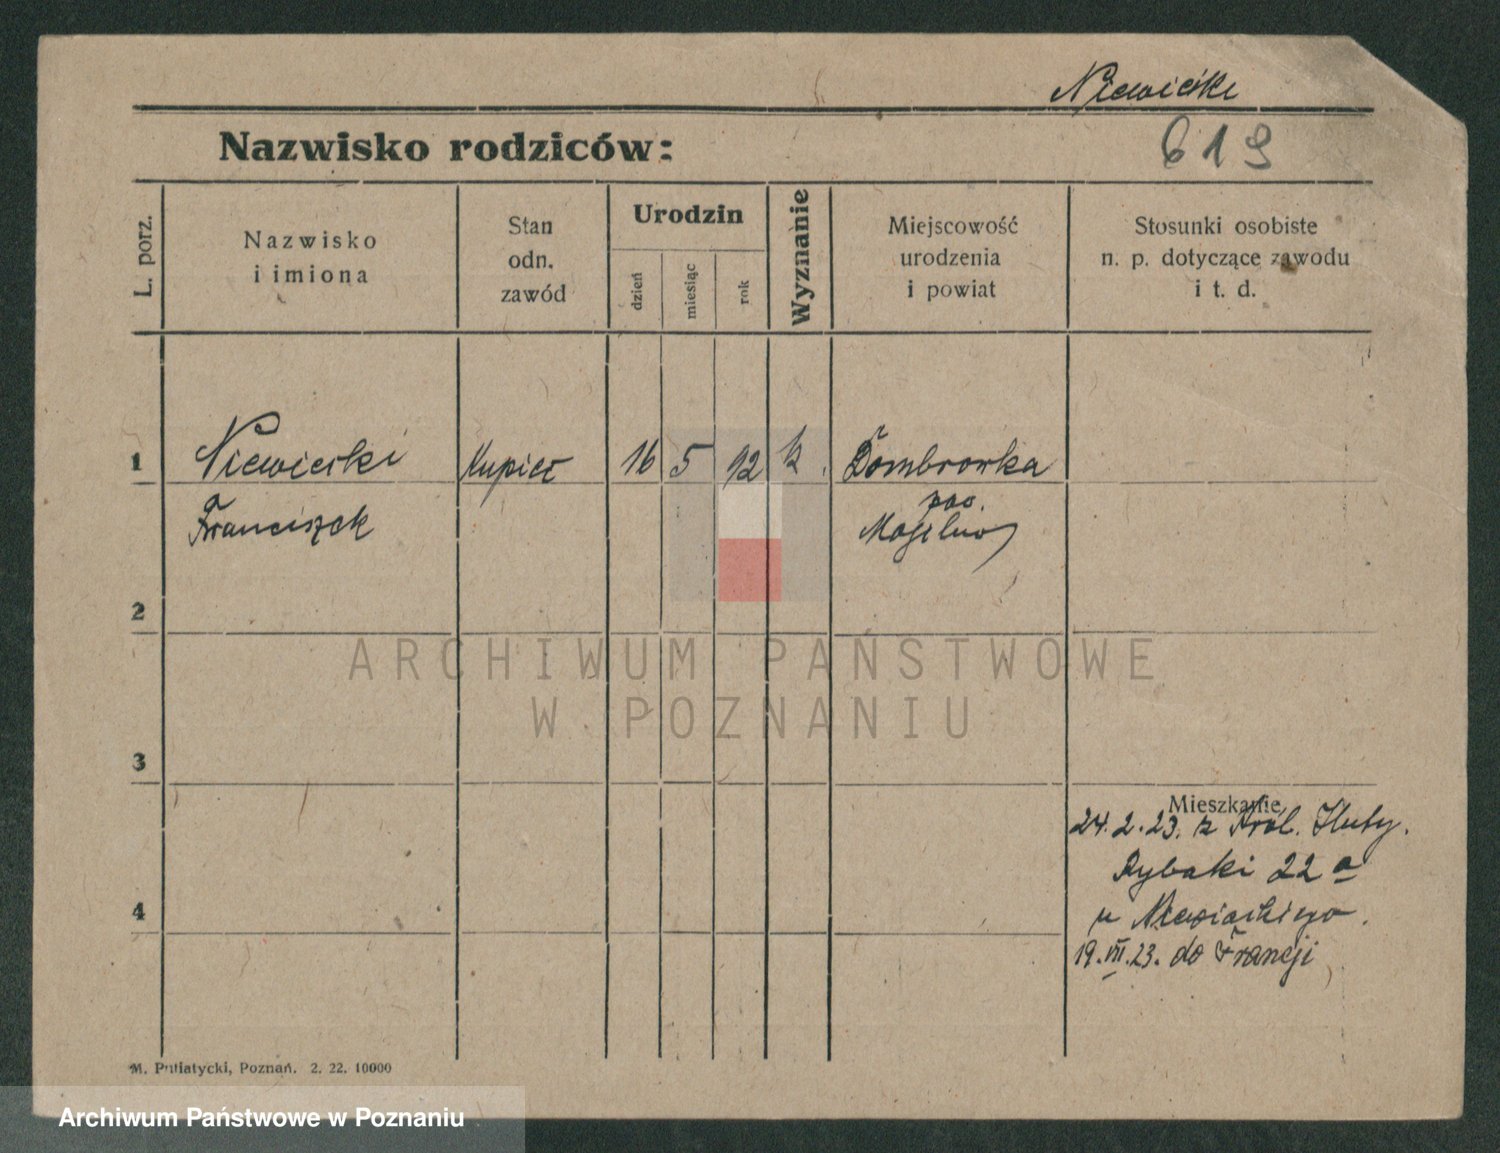 Niewiecki
619
Nazwisko rodziców:
L. porz.
Nazwisko
i imiona
Stan
odn.
zawód
Urodzin
dzień
miesiąc
rok
Wyznanie
Miejscowość
urodzenia
i powiat
Stosunki osobiste
n. p. dotyczące zawodu
i t. d.
1
Niewiecki
Kupiec
16
5
92
k.
Dombrowka
Franciszek
pow.
Mogilno
2
ARCHIWUM PAŃSTWOWE
W POZNANIU
3
Mieszkanie
24.2.23. z Król. Huty.
Rybaki 22a
4
u Niewieckiego.
19.VII.23. do Francji
M. Putiatycki, Poznań. 2. 22. 10000
Archiwum Państwowe w Poznaniu